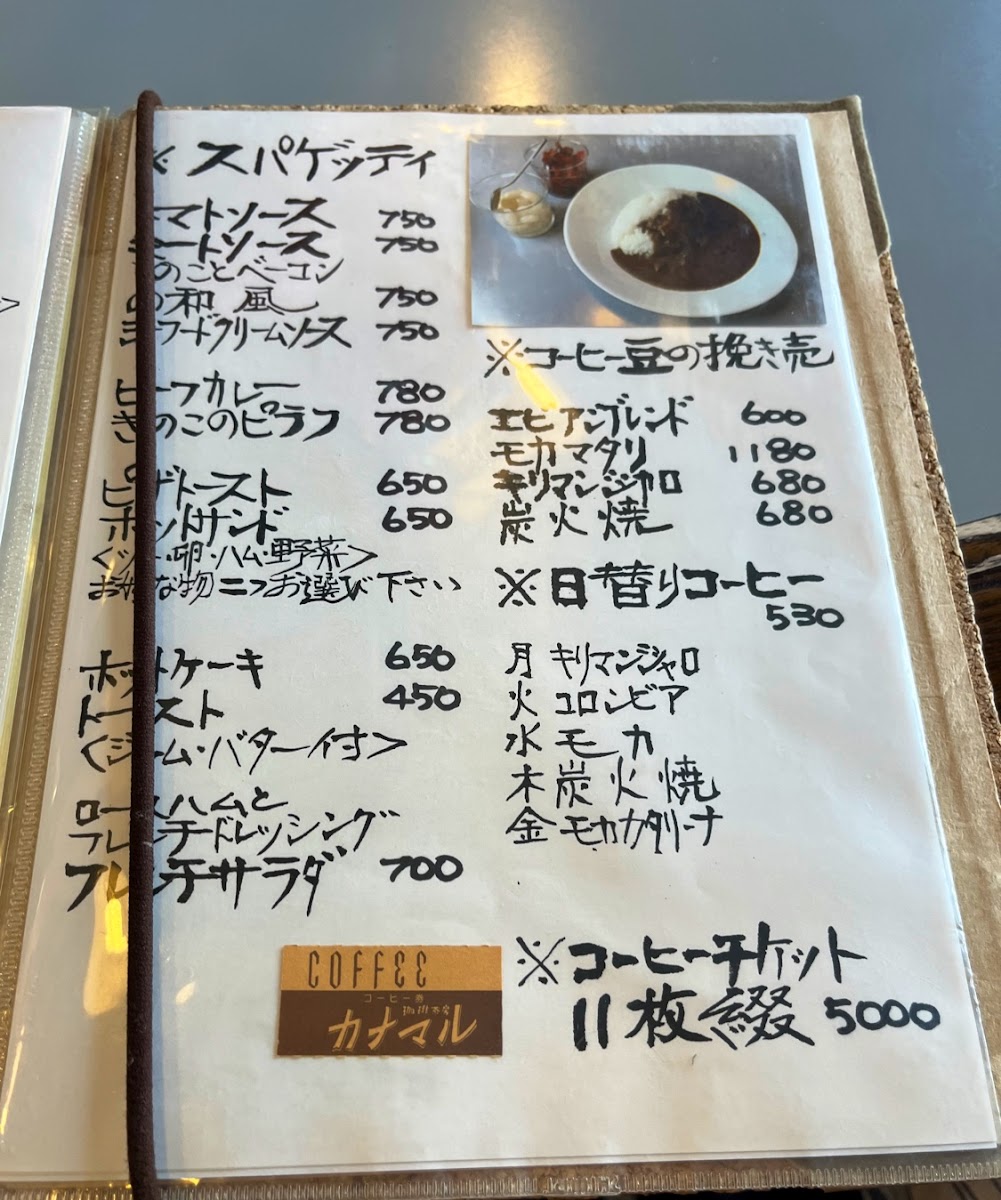 ※ スパゲッティ
トマトソース 750
ミートソース 750
きのことベーコン
の和風 750
シーフードクリームソース 750
ビーフカレー 780
きのこのピラフ 780
ピザトースト 650
ホットサンド 650
卵・ハム・野菜>
お好な物二つお選び下さい
ホットケーキ 650
トースト 450
<ジャム・バター付>
ロースハムと
フレンチドレッシング
フレンチサラダ 700
COFFEE
コーヒー券
珈琲工房
カナマル
※コーヒー豆の挽き売
エビアンブレンド 600
モカマタリ 1180
キリマンジャロ 680
炭火焼 680
※日替りコーヒー
530
月 キリマンジャロ
火 コロンビア
水 モカ
木 炭火焼
金 モカカタリーナ
※コーヒーチケット
11枚綴 5000